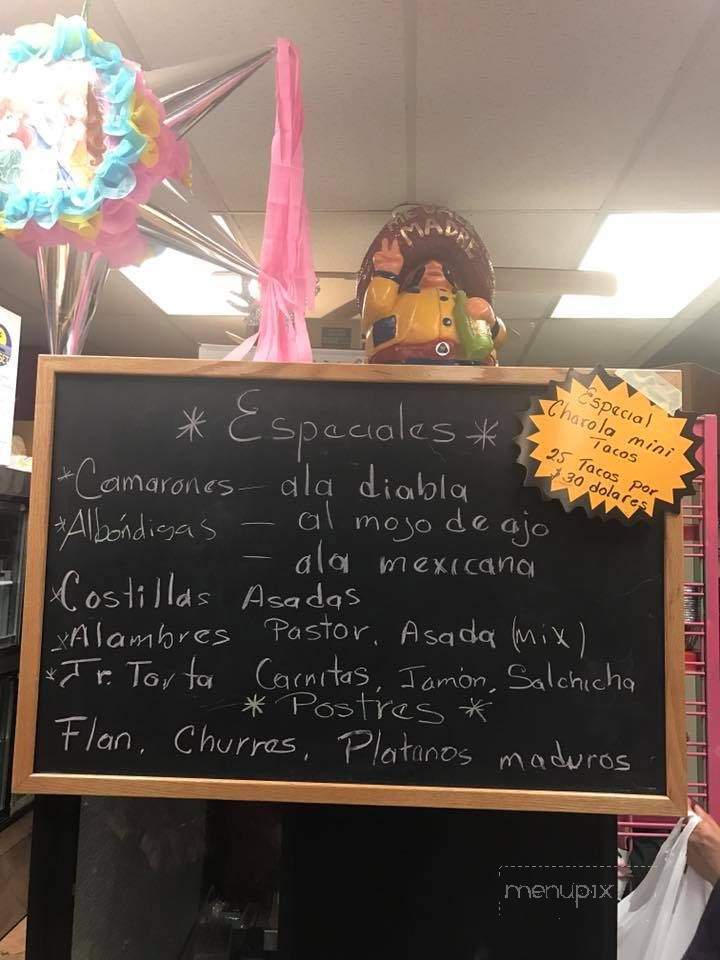 MADRE
* Especiales *
*Camarones - ala diabla
*Albóndigas - al mojo de ajo
- ala mexicana
*Costillas Asadas
*Alambres Pastor, Asada (mix)
*Tr. Torta Carnitas, Jamón, Salchicha
* Postres *
Flan, Churros, Platanos maduros
Especial
Charola mini
Tacos
25 Tacos por
$30 dolares
menupix